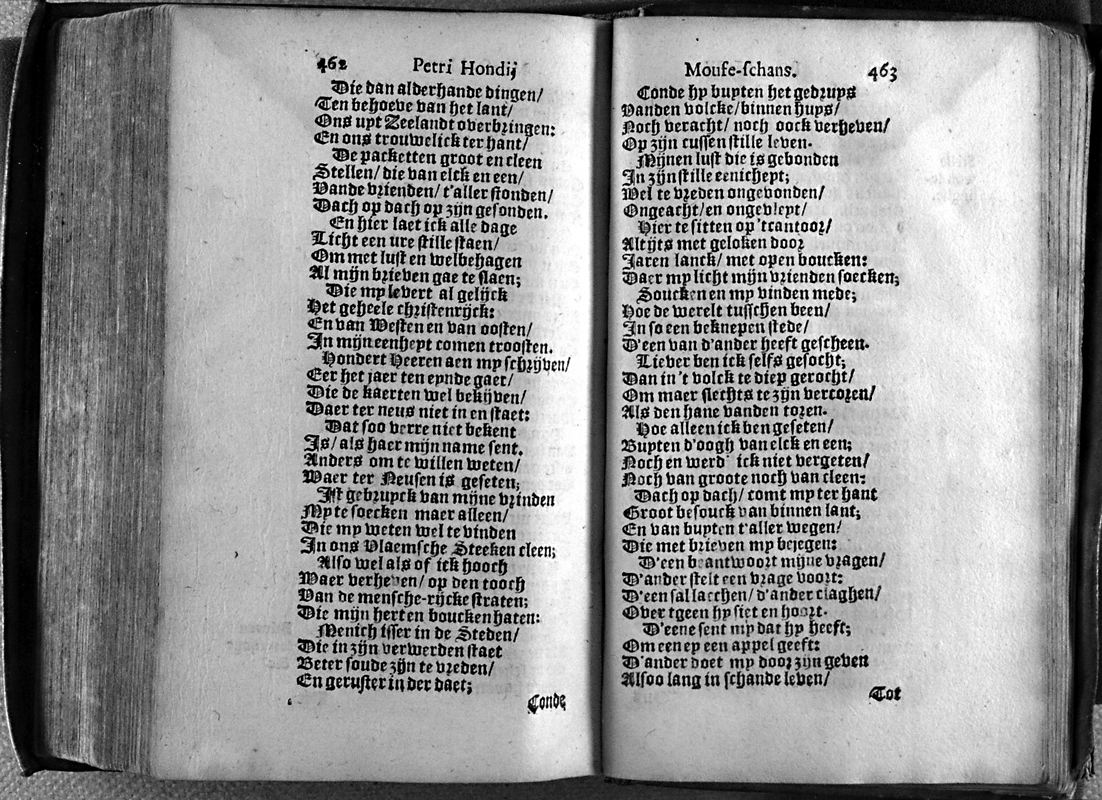 462 Petri Hondij
Die dan alderhande dingen/
Ten behoeve van het lant/
Ons upt Zeelandt overbringen:
En ons trouwelick ter hant/
De packetten groot en cleen
Stellen/ die van elck en een/
Vande vrienden/ t'aller stonden/
Dach op dach op zijn gesonden.
En hier laet ick alle dage
Licht een ure stille staen/
Om met lust en welbehagen
Al mijn brieven gae te slaen;
Die my levert al gelijck
Het geheele christenrijck:
En van Westen en van oosten/
In mijn eenheyt comen troosten.
Hondert Heeren aen my schrijven/
Eer het jaer ten eynde gaer/
Die de kaerten wel bekijven/
Daer ter neus niet in en staet:
Dat soo verre niet bekent
Is/ als haer mijn name sent.
Anders om te willen weten/
Waer ter Neusen is geseten;
Ist gebruyck van mijne vrinden
My te soecken maer alleen/
Die my weten wel te vinden
In ons Vlaemsche Steeken cleen;
Also wel als of ick hooch
Waer verheven/ op den tooch
Van de mensche-rijcke straten;
Die mijn hert en boucken haten:
Menich isser in de Steden/
Die in zijn verwerden staet
Beter soude zijn te vreden/
En geruster in der daet;
Conde
Mouse-schans. 463
Conde hy buyten het gedruys
Vanden volcke/ binnen huys/
Noch veracht/ noch oock verheven/
Op zijn cussen stille leven.
Mijnen lust die is gebonden
In zijn stille eenicheyt;
Wel te vreden ongevonden/
Ongeacht/ en ongevleyt/
Hier te sitten op 'tcantoor/
Altijts met geloken door
Jaren lanck/ met open boucken:
Daer my licht mijn vrienden soecken;
Soucken en my vinden mede;
Hoe de werelt tusschen been/
In so een beknepen stede/
D'een van d'ander heeft gescheen.
Liever ben ick selfs gesocht;
Dan in't volck te diep gerocht/
Om maer slechts te zijn vercoren/
Als den hane vanden toren.
Hoe alleen ick ben geseten/
Buyten d'oogh van elck en een;
Noch en werd' ick niet vergeten/
Noch van groote noch van cleen:
Dach op dach/ comt my ter hant
Groot besouck van binnen lant;
En van buyten t'aller wegen/
Die met brieven my bejegen:
D'een beantwoort mijne vragen/
D'ander stelt een vrage voort:
D'een sal lacchen/ d'ander claghen/
Over tgeen hy siet en hoort.
D'eene sent my dat hy heeft;
Om een ey een appel geeft:
D'ander doet my door zijn geven
Alsoo lang in schande leven/
Tot